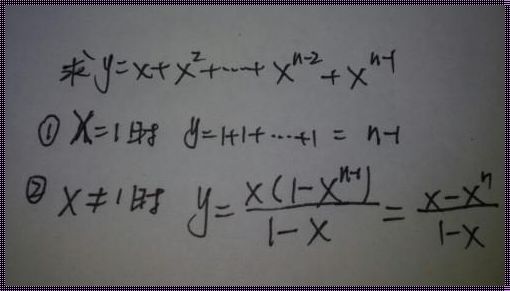 求 y=x+x²+⋯+xⁿ⁻²+xⁿ⁻¹
① x=1时 y=1+1+⋯+1 = n-1
② x≠1时 y= x(1-xⁿ⁻¹)/(1-x) = (x-xⁿ)/(1-x)